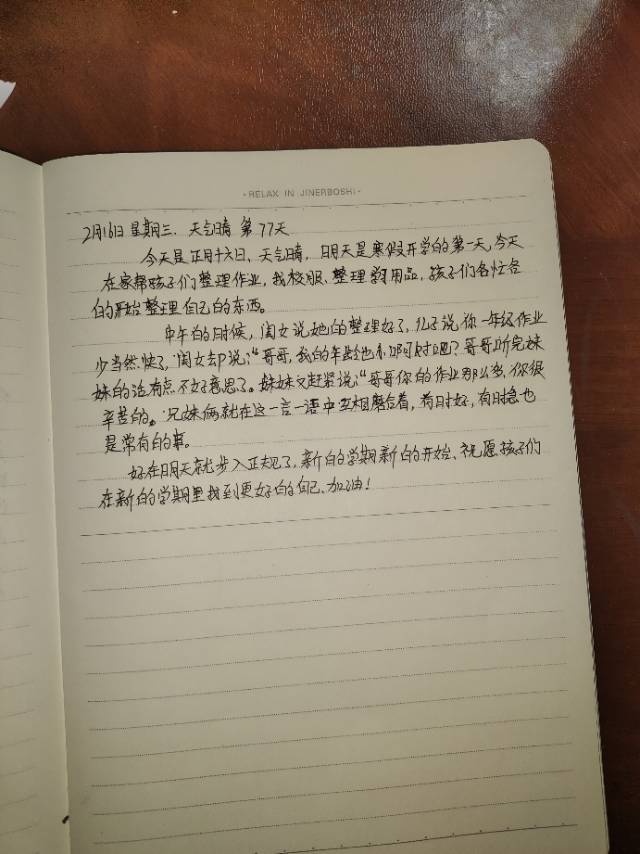 ·RELAX IN JINERBOSHI·
2月16日 星期三. 天气晴 第77天
今天是正月十六日、天气晴，明天是寒假开学的第一天,今天
在家帮孩子们整理作业，找校服、整理学习用品，孩子们各忙各
的开始整理自己的东西。
中午的时候，闺女说她的整理好了，儿子说你一年级作业
少当然快了，闺女却说:“哥哥,我的年龄也小啊对吧？哥哥听完妹
妹的话有点不好意思了。妹妹又赶紧说:“哥哥你的作业那么多,你很
辛苦的。兄妹俩就在这一言一语中互相磨合着，有时好，有时急也
是常有的事。
好在明天就步入正规了，新的学期新的开始、祝愿孩子们
在新的学期里找到更好的自己、加油！